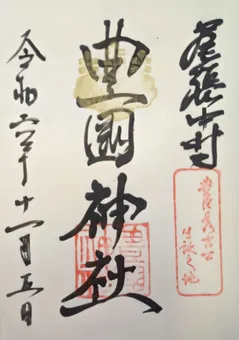 尾張中村
豊臣秀吉公
生誕之地
豊國神社
令和六年十一月五日